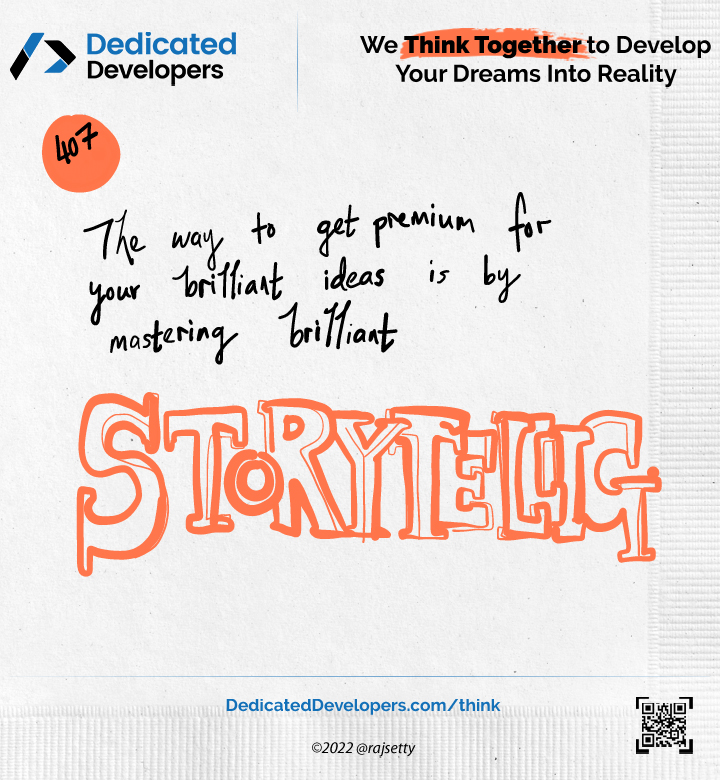 Dedicated
Developers
We Think Together to Develop
Your Dreams Into Reality
407
The way to get premium for
your brilliant ideas is by
mastering brilliant
STORYTELLIG
DedicatedDevelopers.com/think
©2022 @rajsetty